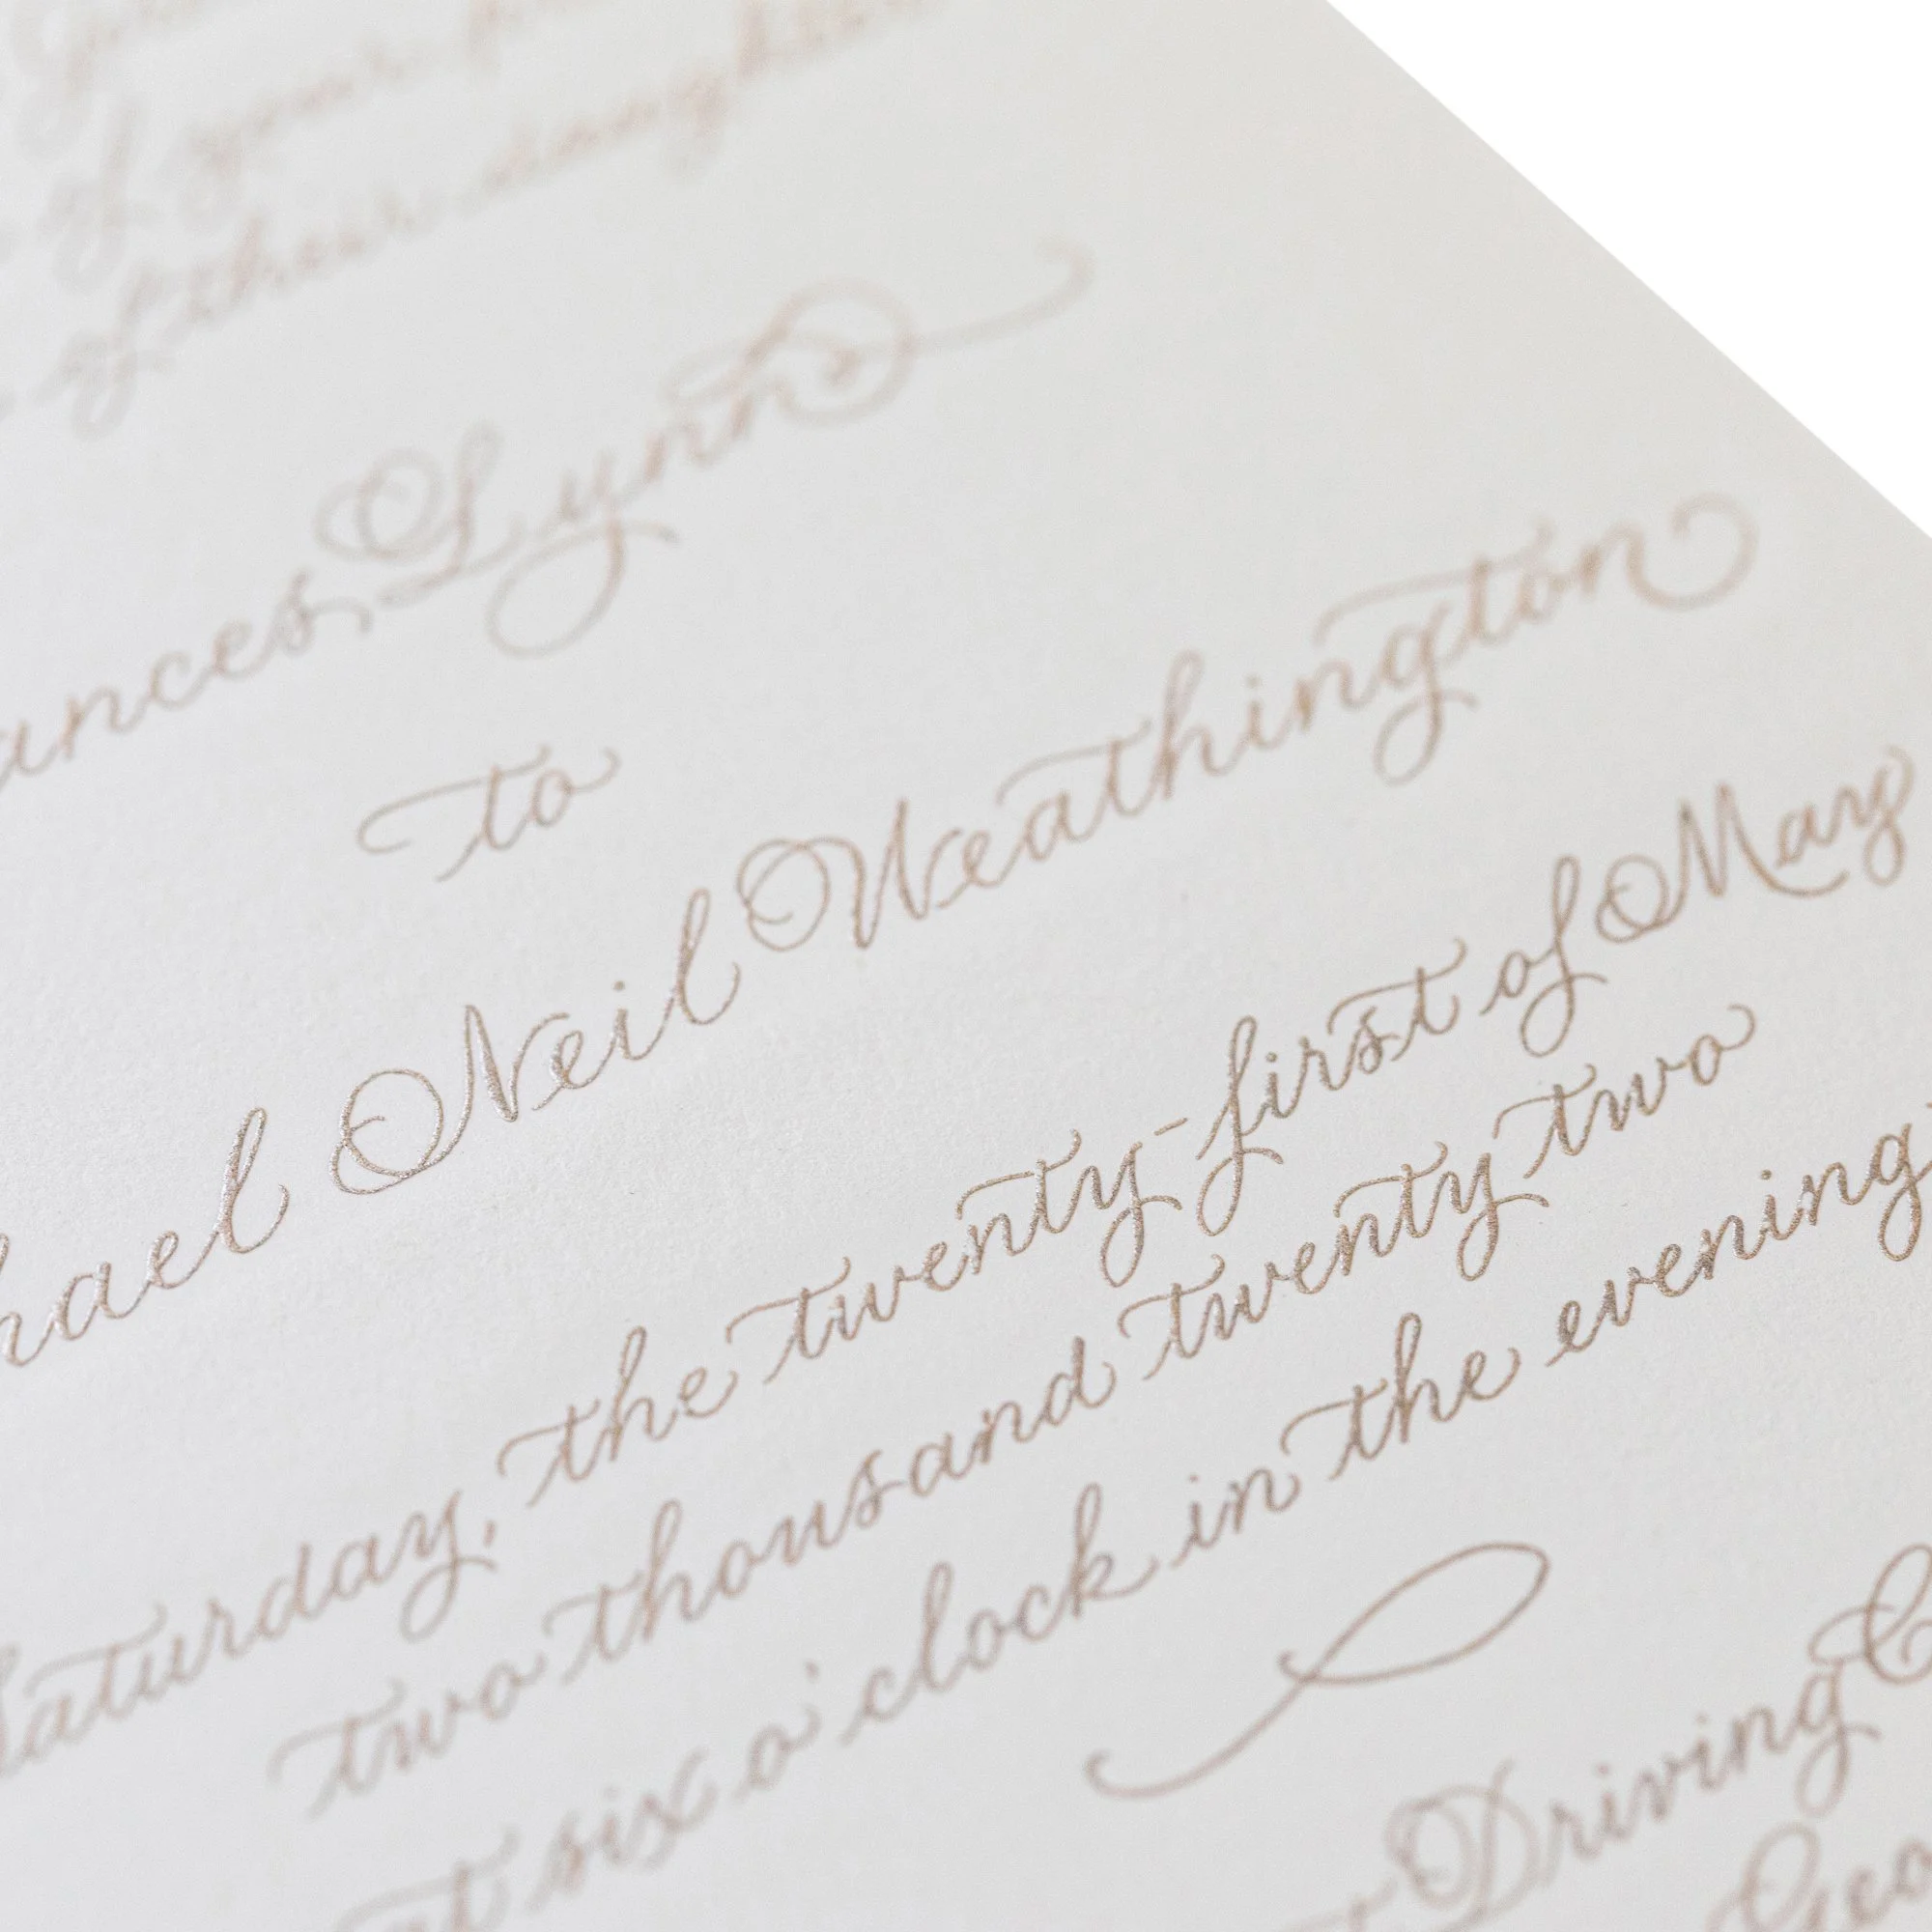 of your
of their daughter
ances Lynn
to
hael Neil Weathington
Saturday, the twenty-first of May
two thousand twenty two
at six o'clock in the evening
Driving C
Geo